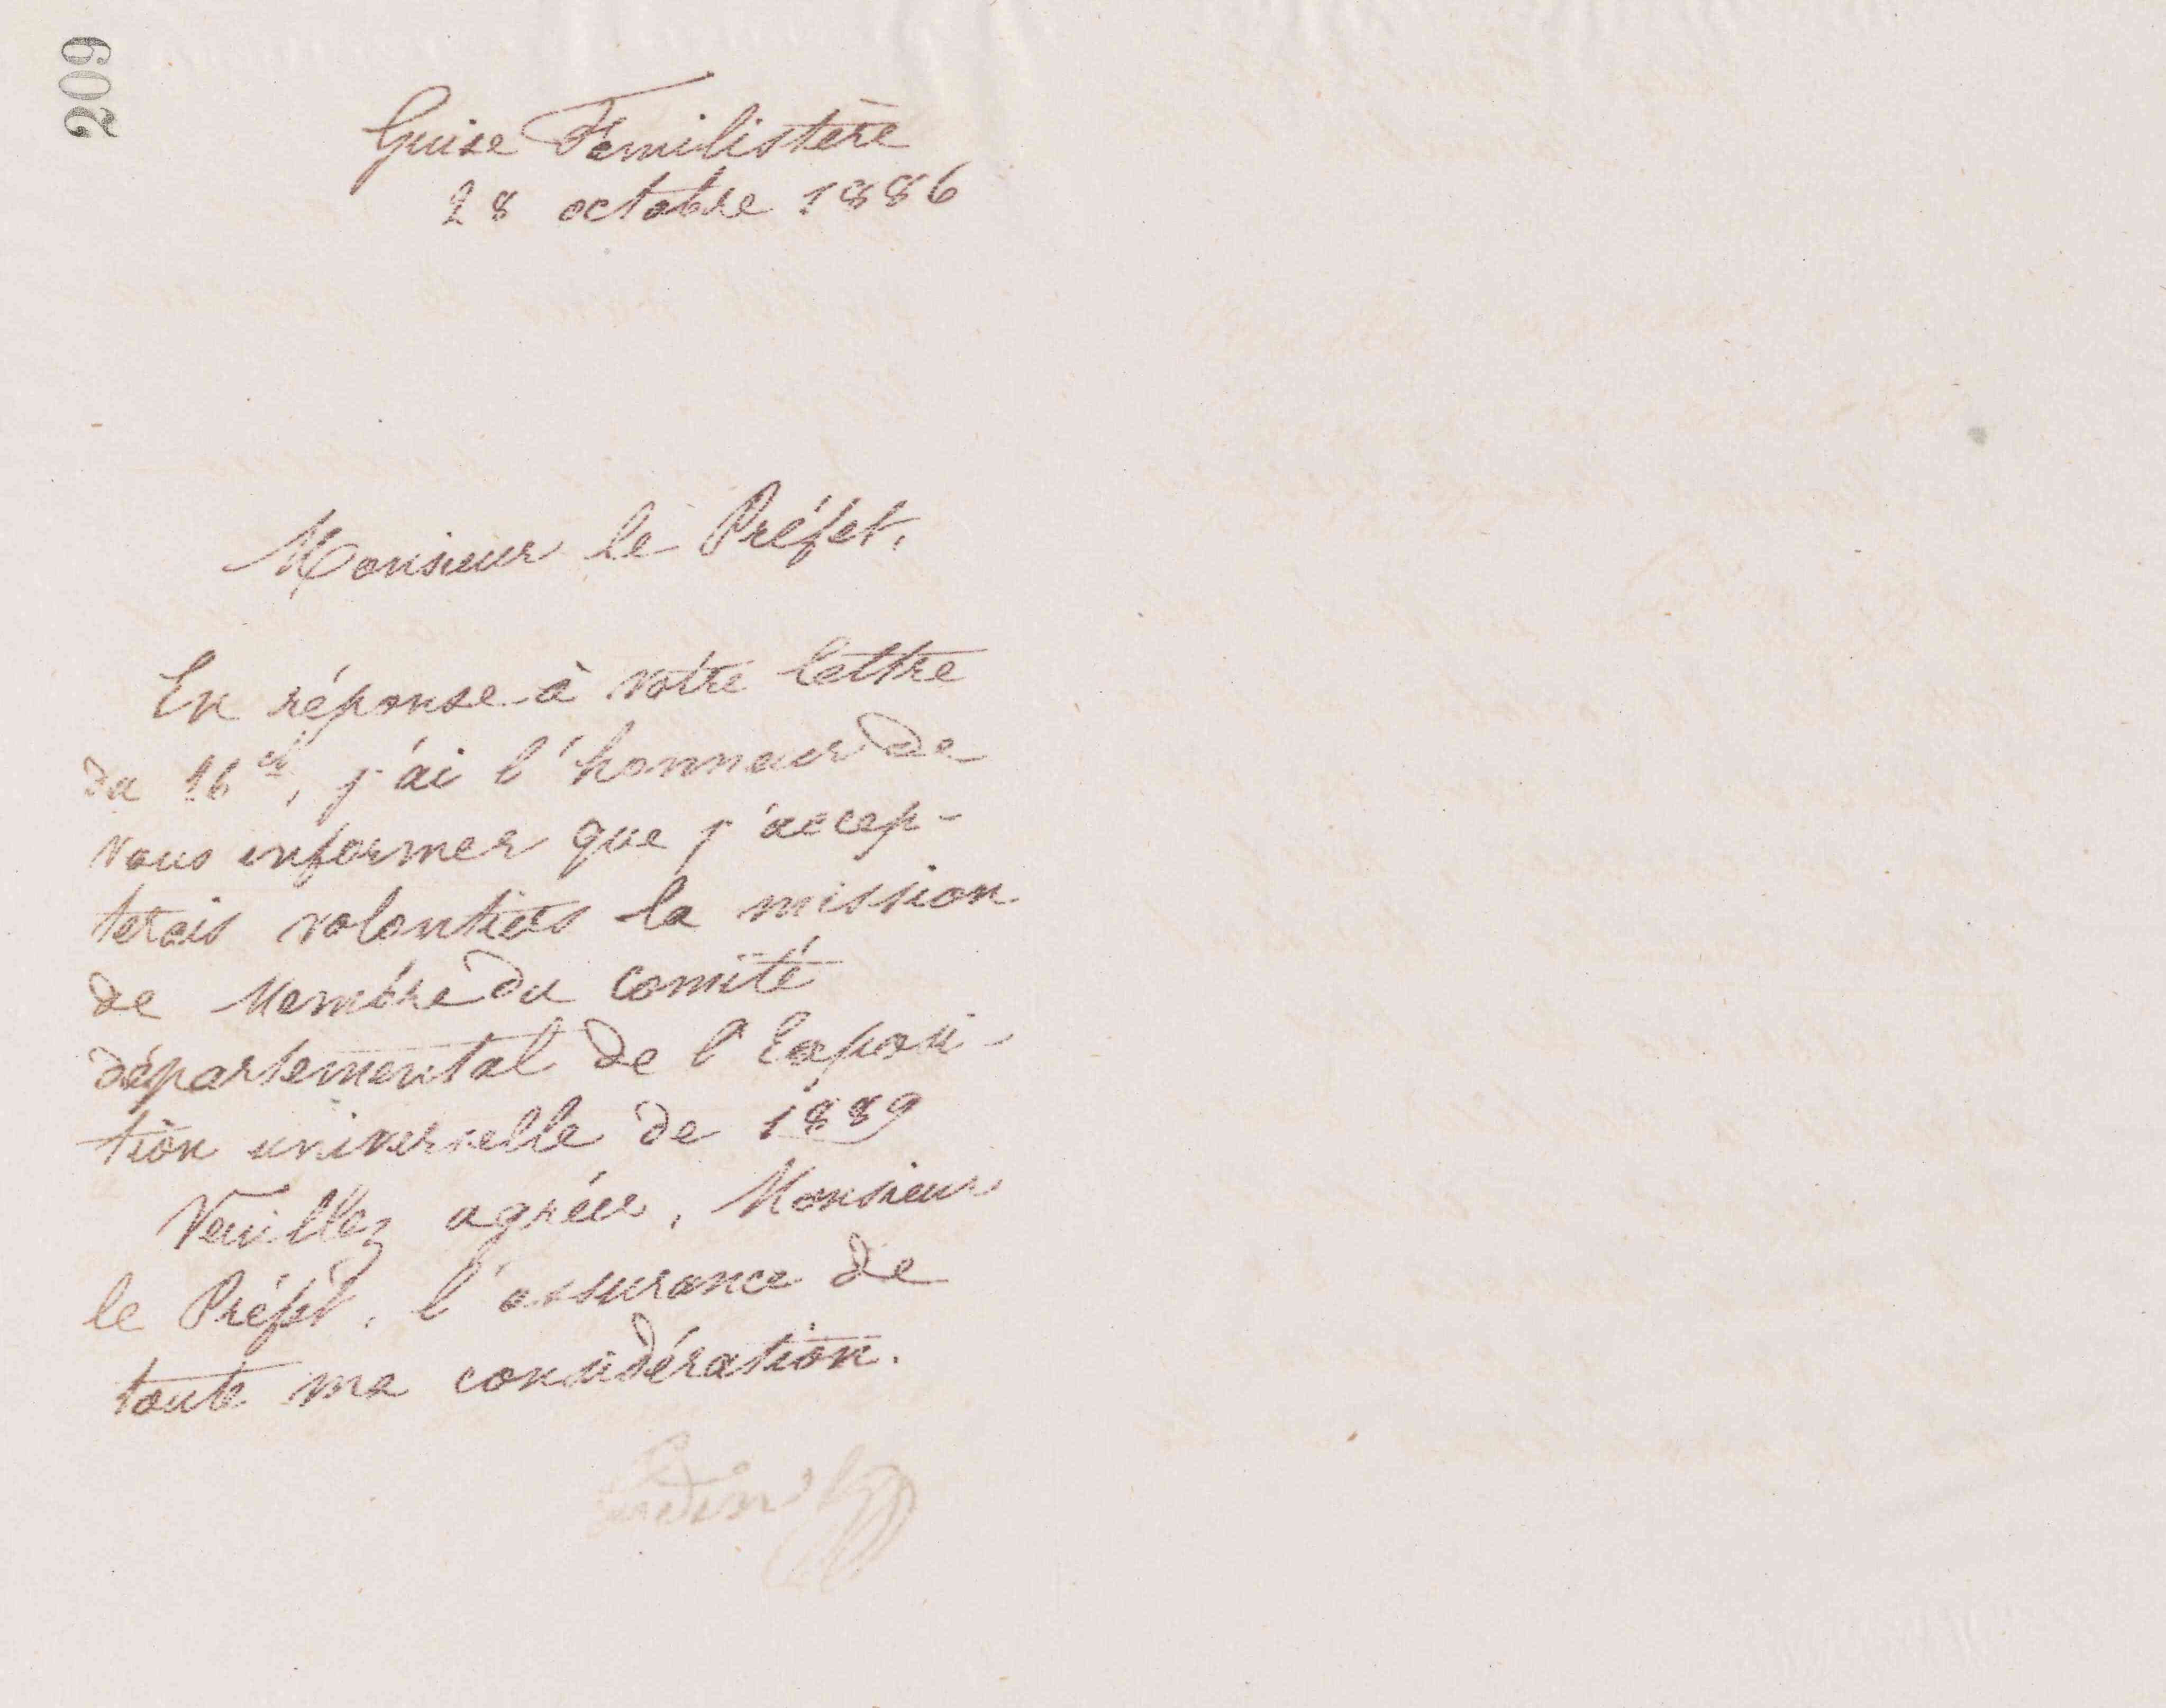 209
Guise Familistère
28 octobre 1886
Monsieur le Préfet,
En réponse à votre lettre
du 16 ct, j'ai l'honneur de
vous informer que j'accep-
terais volontiers la mission
de Membre du comité
départemental de l'Exposi-
tion universelle de 1889
Veuillez agréer, Monsieur
le Préfet, l'assurance de
toute ma considération.
Godin